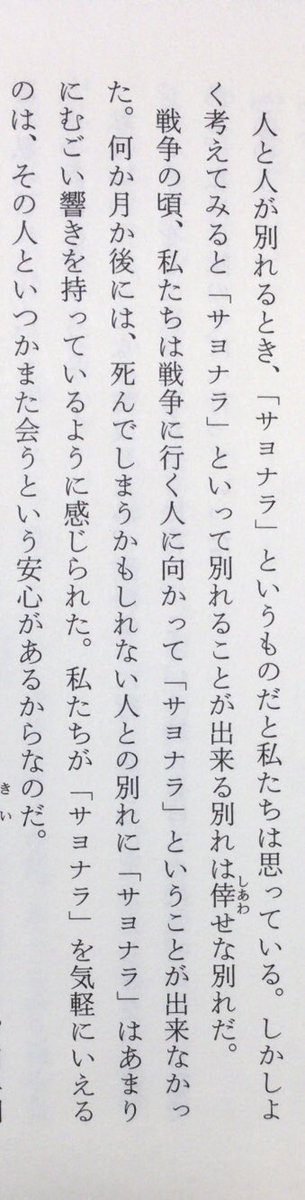 人と人が別れるとき、「サヨナラ」というものだと私たちは思っている。しかしよ
く考えてみると「サヨナラ」といって別れることが出来る別れは倖せな別れだ。
戦争の頃、私たちは戦争に行く人に向かって「サヨナラ」ということが出来なかっ
た。何か月か後には、死んでしまうかもしれない人との別れに「サヨナラ」はあまり
にむごい響きを持っているように感じられた。私たちが「サヨナラ」を気軽にいえる
のは、その人といつかまた会うという安心があるからなのだ。